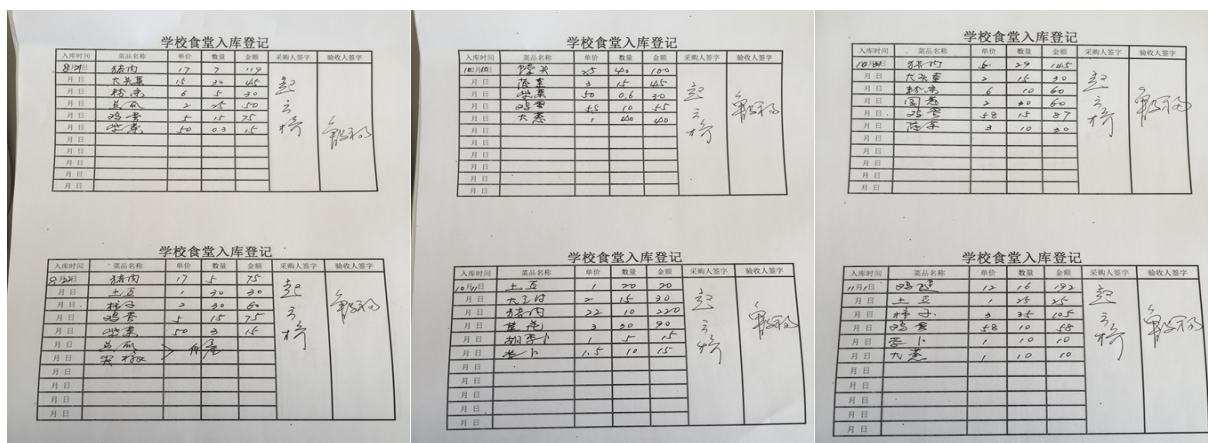 学校食堂入库登记
入库时间 菜品名称 单价 数量 金额 采购人签字 验收人签字
月 日 猪肉 17 7 119
月 日 大头菜 15 30 45
月 日 粉条 6 5 30
月 日 2 25 50
月 日 鸡蛋 5 15 75
月 日 紫菜 50 0.3 15
月 日
月 日
月 日
月 日
学校食堂入库登记
入库时间 菜品名称 单价 数量 金额 采购人签字 验收人签字
月 日 猪肉 17 5 75
月 日 土豆 1 30 30
月 日 柿子 2 30 60
月 日 鸡蛋 5 15 75
月 日 紫菜 50 3 15
月 日
月 日
月 日
月 日
月 日
学校食堂入库登记
入库时间 菜品名称 单价 数量 金额 采购人签字 验收人签字
10月10日 馒头 25 40 100
月 日 3 15 45
月 日 紫菜 50 0.6 30
月 日 鸡蛋 5.5 10 55
月 日 大葱 1 40 40
月 日
月 日
月 日
月 日
月 日
学校食堂入库登记
入库时间 菜品名称 单价 数量 金额 采购人签字 验收人签字
10月11日 土豆 1 20 20
月 日 2 15 30
月 日 猪肉 22 10 220
月 日 3 30 90
月 日 胡萝卜 1 5 15
月 日 萝卜 1.5 10 15
月 日
月 日
月 日
月 日
学校食堂入库登记
入库时间 菜品名称 单价 数量 金额 采购人签字 验收人签字
猪肉 5 29 145
月 日 大头菜 2 15 30
月 日 粉条 6 10 60
月 日 圆葱 2 30 60
月 日 鸡蛋 58 15 87
月 日 3 10 30
月 日
月 日
月 日
月 日
学校食堂入库登记
入库时间 菜品名称 单价 数量 金额 采购人签字 验收人签字
11月1日 12 16 192
月 日 土豆 1 25 25
月 日 柿子 3 35 105
月 日 鸡蛋 58 10 58
月 日 萝卜 1 10 10
月 日 大葱 1 10 10
月 日
月 日
月 日
月 日